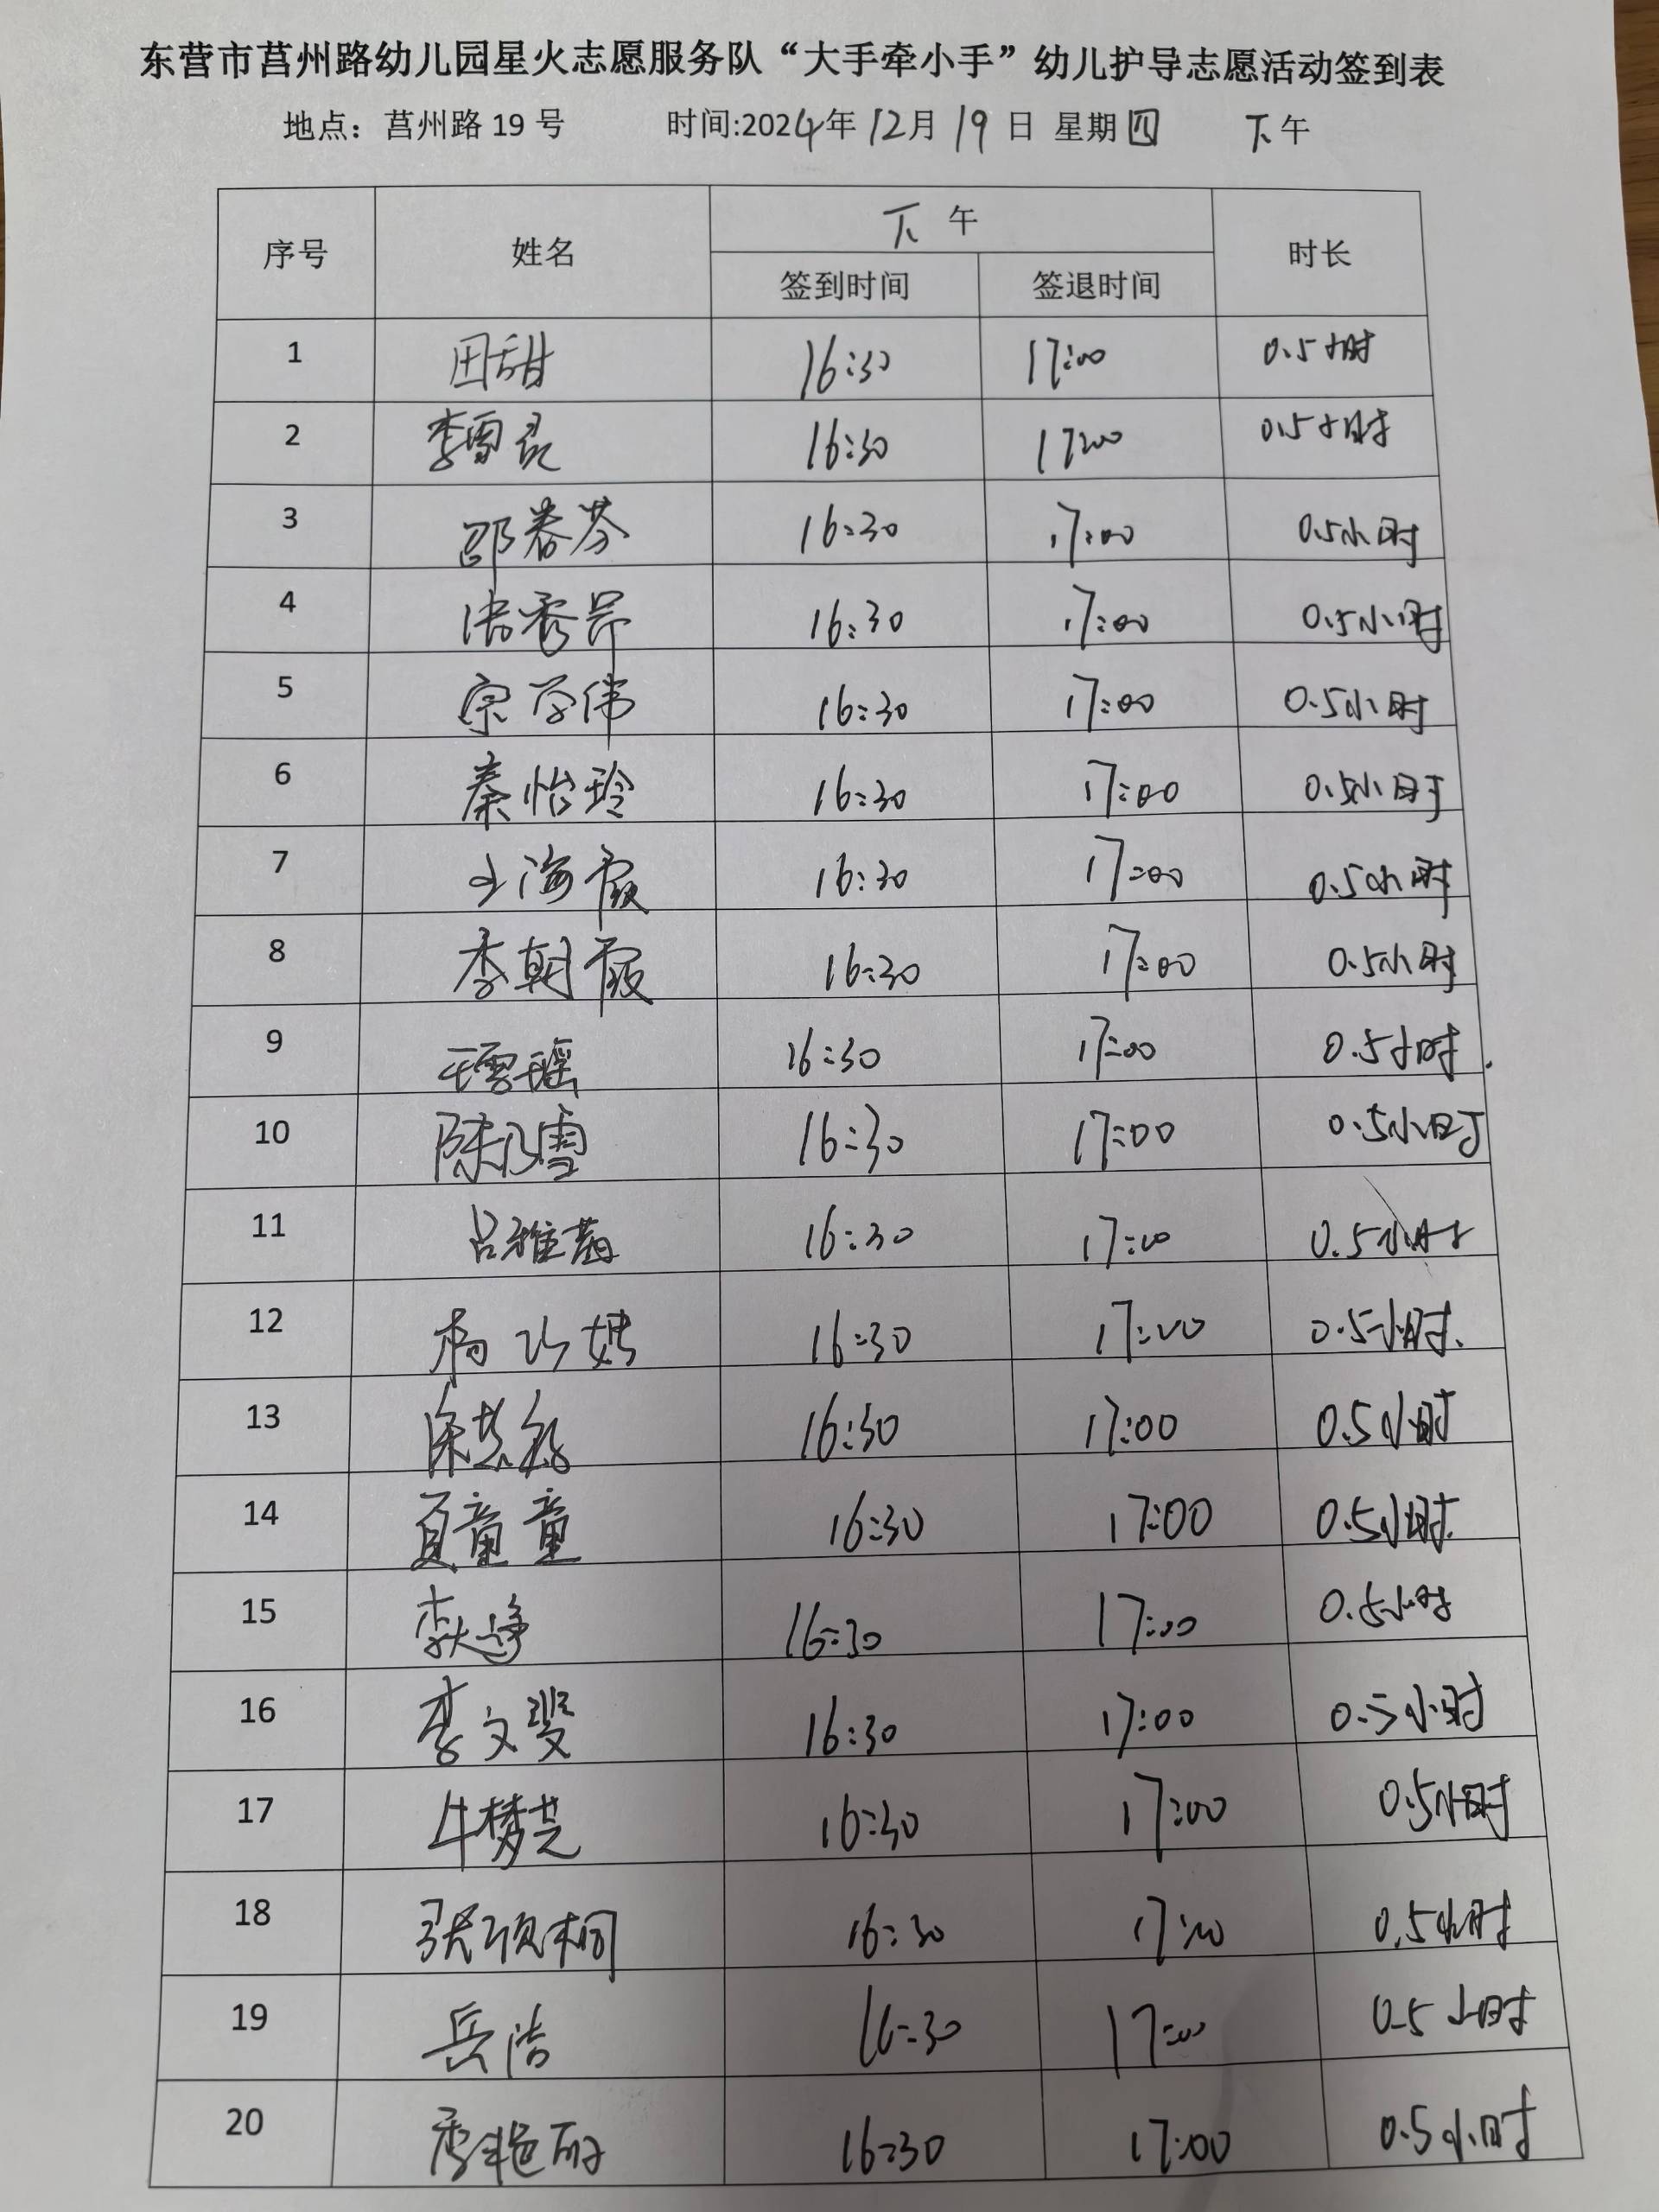 东营市莒州路幼儿园星火志愿服务队“大手牵小手”幼儿护导志愿活动签到表
地点：莒州路 19 号 时间:2024年12月19日 星期四 下午
序号 姓名 下午 时长
签到时间 签退时间
1 田甜 16:30 17:00 0.5小时
2 李雪 16:30 17:00 0.5小时
3 邵春芬 16:30 17:00 0.5小时
4 秀 16:30 17:00 0.5小时
5 宗学伟 16:30 17:00 0.5小时
6 秦怡玲 16:30 17:00 0.5小时
7 王海霞 16:30 17:00 0.5小时
8 李朝霞 16:30 17:00 0.5小时
9 王雪瑶 16:30 17:00 0.5小时.
10 陈乃雪 16:30 17:00 0.5小时
11 吕雅茜 16:30 17:00 0.5小时
12 杨 16:30 17:00 0.5小时.
13 16:30 17:00 0.5小时
14 夏童童 16:30 17:00 0.5小时.
15 16:30 17:00 0.5小时
16 李文 16:30 17:00 0.5小时
17 牛梦芸 16:30 17:00 0.5小时
18 张硕桐 16:30 17:00 0.5小时
19 岳洁 16:30 17:00 0.5小时
20 季艳丽 16:30 17:00 0.5小时